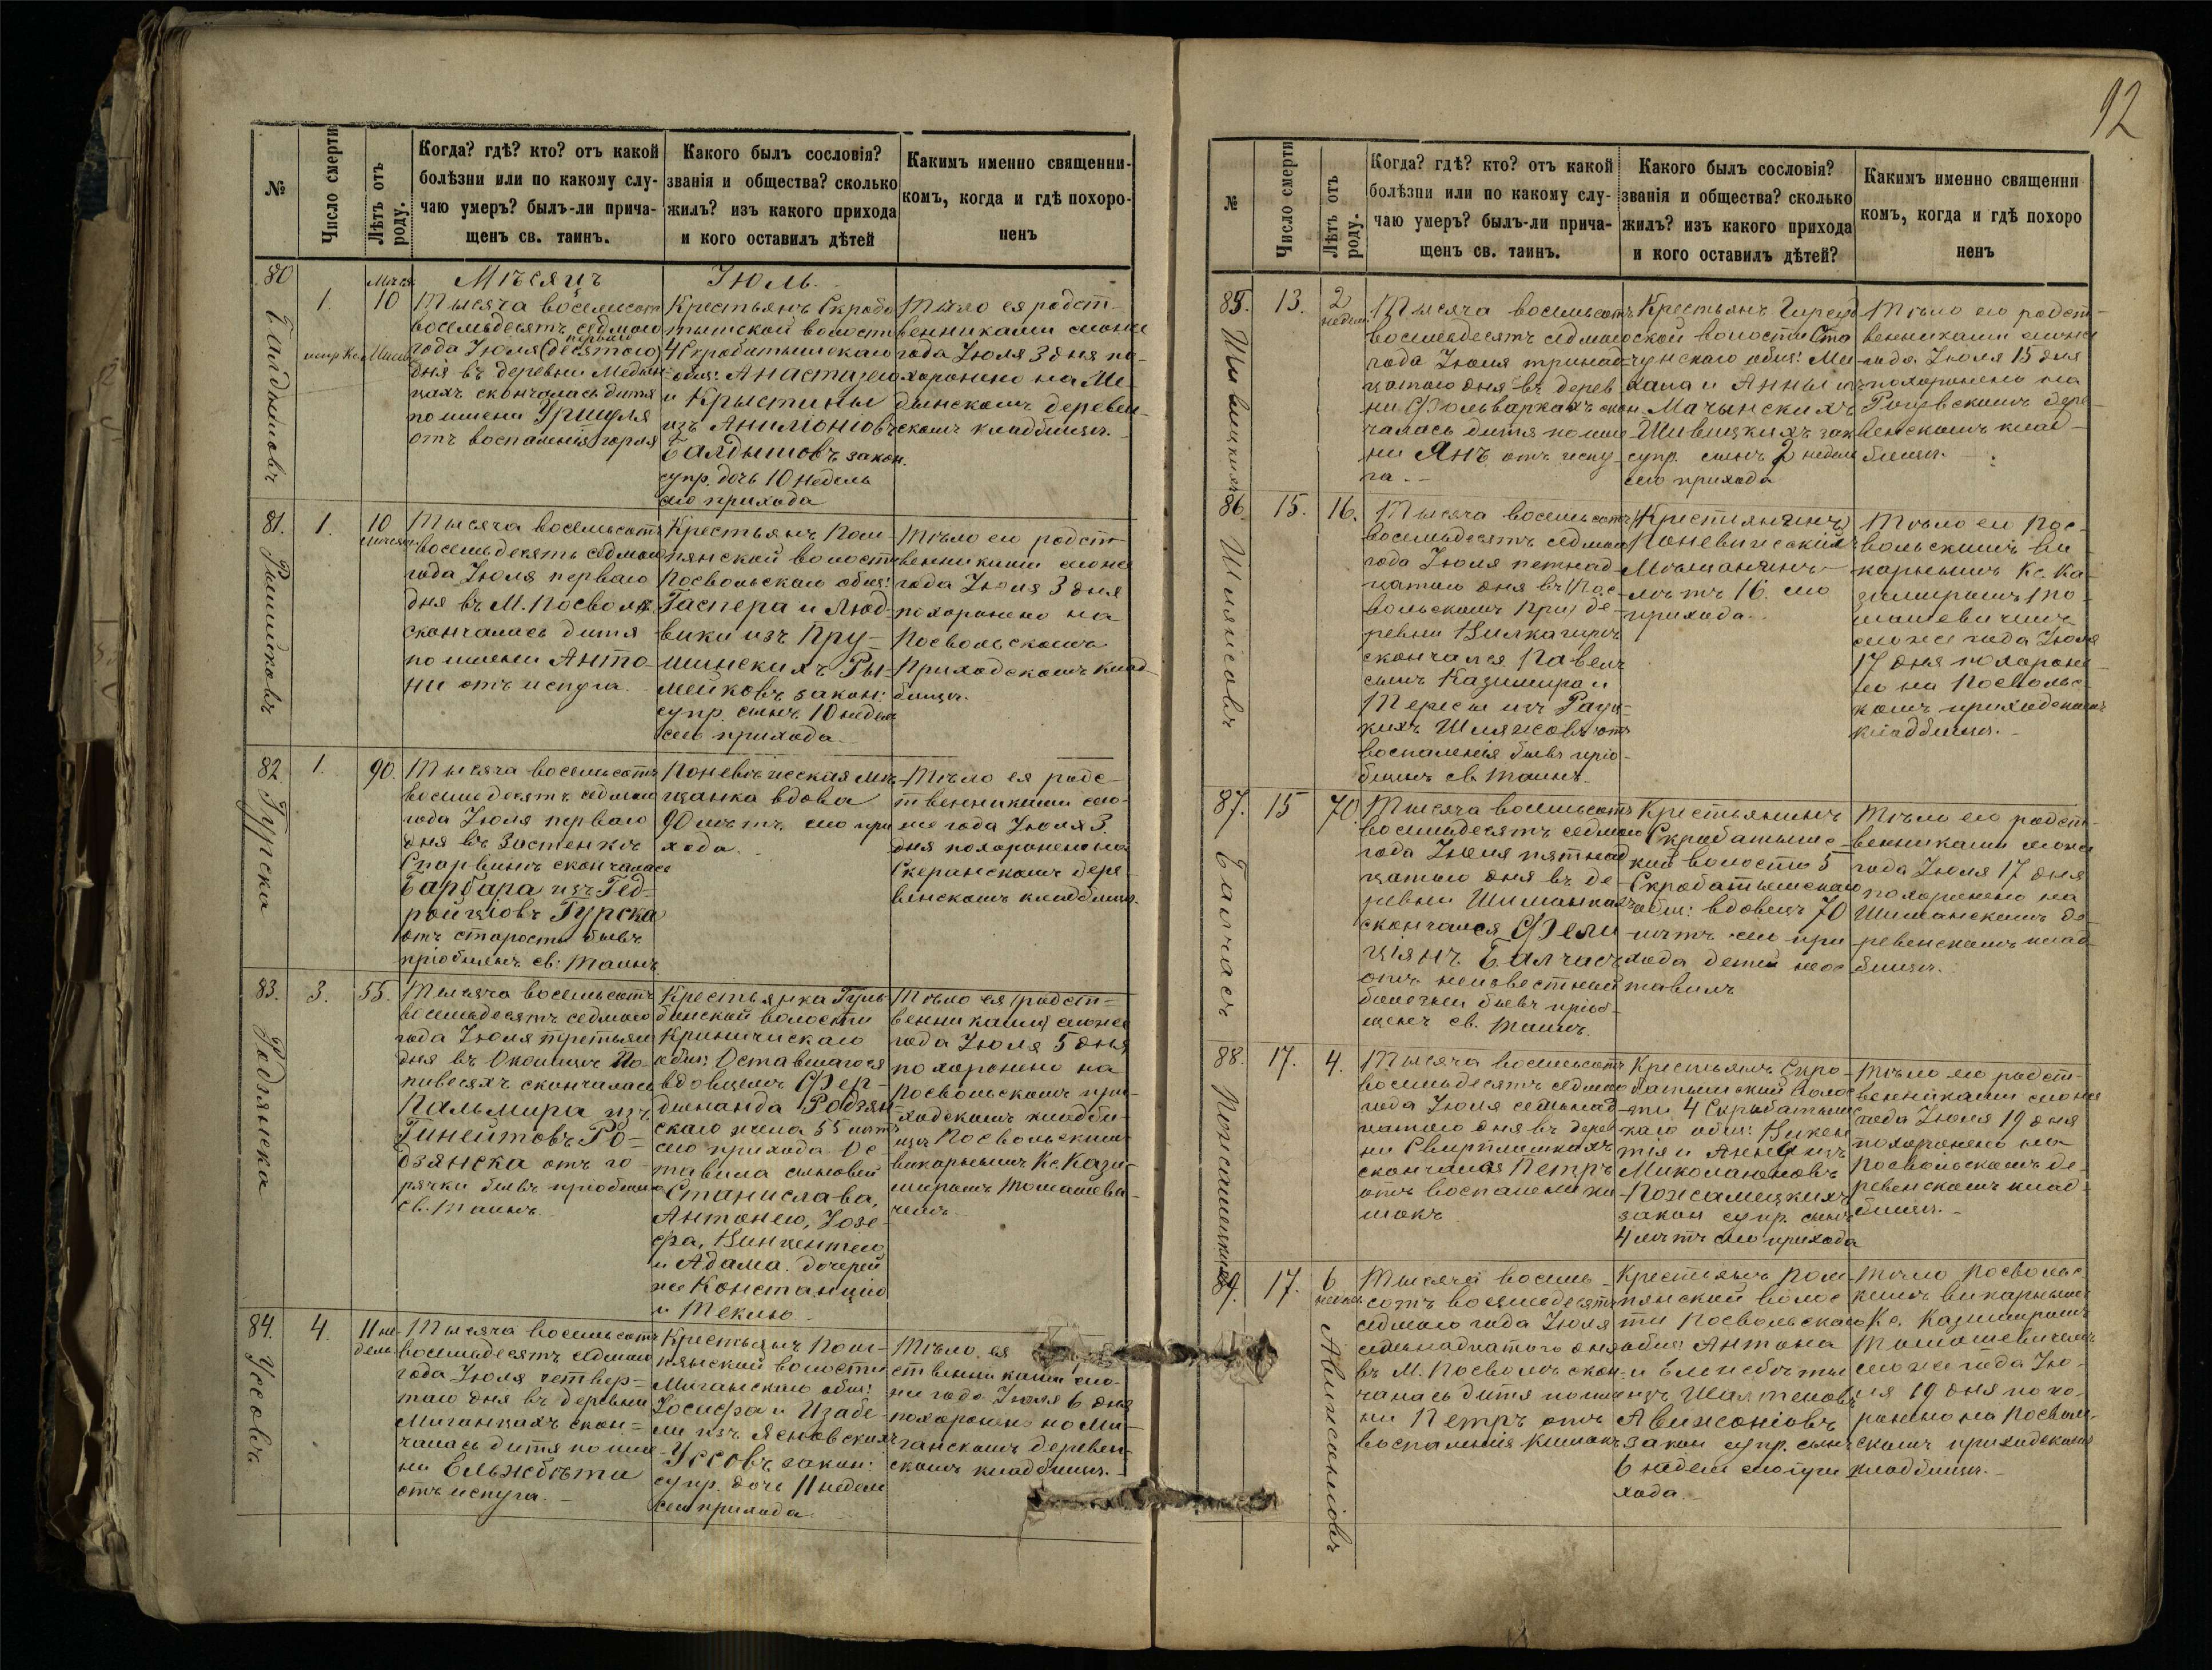 92
№
Число смерти
Лѣтъ отъ роду.
Когда? гдѣ? кто? отъ какой
болѣзни или по какому слу-
чаю умеръ? былъ-ли прича-
щенъ св. таинъ.
Какого былъ сословія?
званія и общества? сколько
жилъ? изъ какого прихода
и кого оставилъ дѣтей
Каким​ъ именно священни-
комъ, когда и гдѣ похоро-
ненъ
Мѣсяцъ Іюль.
80
1.
10
Тысяча восемьсотъ
восемьдесятъ седмого
первого
года Іюля (десятого)
дня въ деревни
скончалась дитя
по имени Уршуля
отъ воспаленія горла
Крестьянъ Скробо
тышской волости
4 Скробатышскаго
общ: Анастазего
и Крыстины
изъ
Балдышовъ закон.
супр. дочь 10 недель
сего прихода
Тѣло ея родст-
венниками сего же
года Іюля 3 дня по-
хоронено на Ме-
дынскомъ деревен-
скомъ кладбищѣ.
81.
1.
10
Тысяча восемьсотъ
восемьдесятъ седмого
года Іюля первого
дня въ М. Посволѣ
скончалась дитя
по имени Анто-
ни отъ испуга.
Крестьянъ Пом-
пянской волости
Посвольскаго общ:
Гаспера и Люд-
вики изъ Пру-
шинскихъ Ры-
мейковъ закон:
супр. сынъ 10 недель
сего прихода.
Тѣло его родст
венниками сего же
года Іюля 3 дня
похоронено на
Посвольскомъ
Приходскомъ клад
бищѣ.
82
Гурска
1.
90.
Тысяча восемьсотъ
восемьдесятъ седмого
года Іюля первого
дня въ Застенкѣ
скончалась
Барбара изъ Гед-
ройціовъ Гурска
отъ старости бывъ
пріобщенъ св: Таинъ
Поневѣжеская мѣ-
щанка вдова
90 лѣтъ сего при
хода.
Тѣло ея родс-
твенниками сего-
же года Іюля 3.
дня похоронено на
Скеринскомъ дере-
венскомъ кладбищѣ.
83.
Родзянска
3.
55.
Тысяча восемьсотъ
восемьдесятъ седмого
года Іюля третьяго
дня въ Околицѣ По-
пивесяхъ скончалась
Пальмира изъ
Гинейтовъ Ро-
дзянска отъ го-
рячки бывъ пріобщена
св. Таинъ
Крестьянка Гуль
бинской волости
Криничискаго
общ: Оставшагося
вдовцемъ Фер-
динанда Родзян
скаго жила 55 лѣтъ
сего прихода Ос-
тавила сыновей
Станислава,
Антонего, Іозе-
фа, Винцентего
и Адама. дочерей
же Констанцію
и Теклю.
Тѣло ея родст-
венниками сего же
года Іюля 5 дня
похоронено на
Посвольскомъ при-
ходскомъ кладби-
щѣ Посвольскимъ
викарнымъ Кс. Кази-
миромъ Томашеви-
чемъ.
84.
Уссовъ
4.
11 не-
дель.
Тысяча восемьсотъ
восемьдесятъ седмого
года Іюля четвер-
таго дня въ деревни
Миганцахъ скон-
чалась дитя по име
ни Ельжбѣта
отъ испуга.
Крестьянъ Пом-
пянской волости
Миганскаго общ:
Іосифа и Изабе-
ли изъ Ясновскихъ
Уссовъ закон:
супр. дочь 11 недель
сего прихода.
Тѣло ея
ственниками сего-
же года Іюля 6 дня
похоронено на Ми-
ганскомъ деревен-
скомъ кладбищѣ.
№
Число смерти
Лѣтъ отъ роду.
Когда? гдѣ? кто? отъ какой
болѣзни или по какому слу-
чаю умеръ? былъ-ли прича-
щенъ св. таинъ.
Какого былъ сословія?
званія и общества? сколько
жилъ? изъ какого прихода
и кого оставилъ дѣтей?
Какимъ именно священни
комъ, когда и гдѣ похоро
ненъ
85.
13.
2
недели
Тысяча восемьсотъ
восемьдесятъ седмого
года Іюля тринад-
цатого дня въ дерев
ни Фольваркахъ скон
чалась дитя по име
ни Янъ отъ испу-
га.
Крестьянъ
ской волости
общ: Ми-
хала и Анны изъ
Мачынскихъ
закон
супр. сынъ 2 недели
сего прихода
Тѣло его родст-
венниками сего же
года Іюля 15 дня
похоронено на
дере-
венскомъ клад-
бищѣ.
86.
Шляжовъ
15.
16.
Тысяча восемьсотъ
восемьдесятъ седмого
года Іюля петнад-
цатого дня въ Пос-
вольскомъ при де-
ревни
скончался Павелъ
сынъ Казимира и
Тересы изъ
Шляжовъ отъ
воспаленія бывъ пріо-
бщенъ св. Таинъ.
Крестіянинъ
Поневѣжескій
Мѣщанинъ
лѣтъ 16. сего
прихода.
Тѣло его Пос-
вольскимъ ви-
карнымъ Кс. Ка-
зимиромъ То-
машевичемъ
сего же года Іюля
17 дня похороне-
но на Посвольс-
комъ приходскомъ
кладбищѣ.
87.
Балчасъ
15
70.
Тысяча восемьсотъ
восемьдесятъ седмого
года Іюля пятнад
цатого дня въ де-
ревни Шиманцахъ
скончался Фели-
ціянъ Балчасъ
отъ неизвестной
болезни бывъ пріоб-
щенъ св. Таинъ.
Крестьянинъ
Скробатышс-
кой волости 5
Скробатышскаго
общ: вдовецъ 70
лѣтъ сего при
хода детей неос
тавилъ
Тѣло его родст-
венниками сего же
года Іюля 17 дня
похоронено на
Шиманскомъ де-
ревенскомъ клад
бищѣ.
88.
17.
4.
Тысяча восемьсотъ
восемьдесятъ седмого
года Іюля семьнад-
цатого дня въ дерев
ни
скончался Петръ
отъ воспаленіи ки
шокъ
Крестьянъ Скро-
батышской волос
ти 4 Скробатышс
каго общ: Викен
тія и Анны изъ
Миколаюновъ
закон супр. сынъ
4 лѣтъ сего прихода
Тѣло его родст-
венниками сего же
года Іюля 19 дня
похоронено на
Посвольскомъ де-
ревенскомъ клад-
бищѣ.
89.
Авижоніовъ
17.
6
недель
Тысяча восемь-
сотъ восемьдесятъ
седмого года Іюля
семьнадцатого дня
въ М. Посволѣ скон
чалась дитя по име
ни Петръ отъ
воспаленія кишокъ
Крестьянъ Пом-
пянской волос
ти Посвольскаго
общ: Антона
и Ельжбѣты
изъ
Авижоніовъ
закон супр. сынъ
6 недель сего при
хода.
Тѣло Посвольс-
кимъ викарнымъ
Кс. Казимиромъ
Томашевичемъ
сего же года Ію-
ля 19 дня похо-
ронено на Посволь-
скомъ приходскомъ
кладбищѣ.